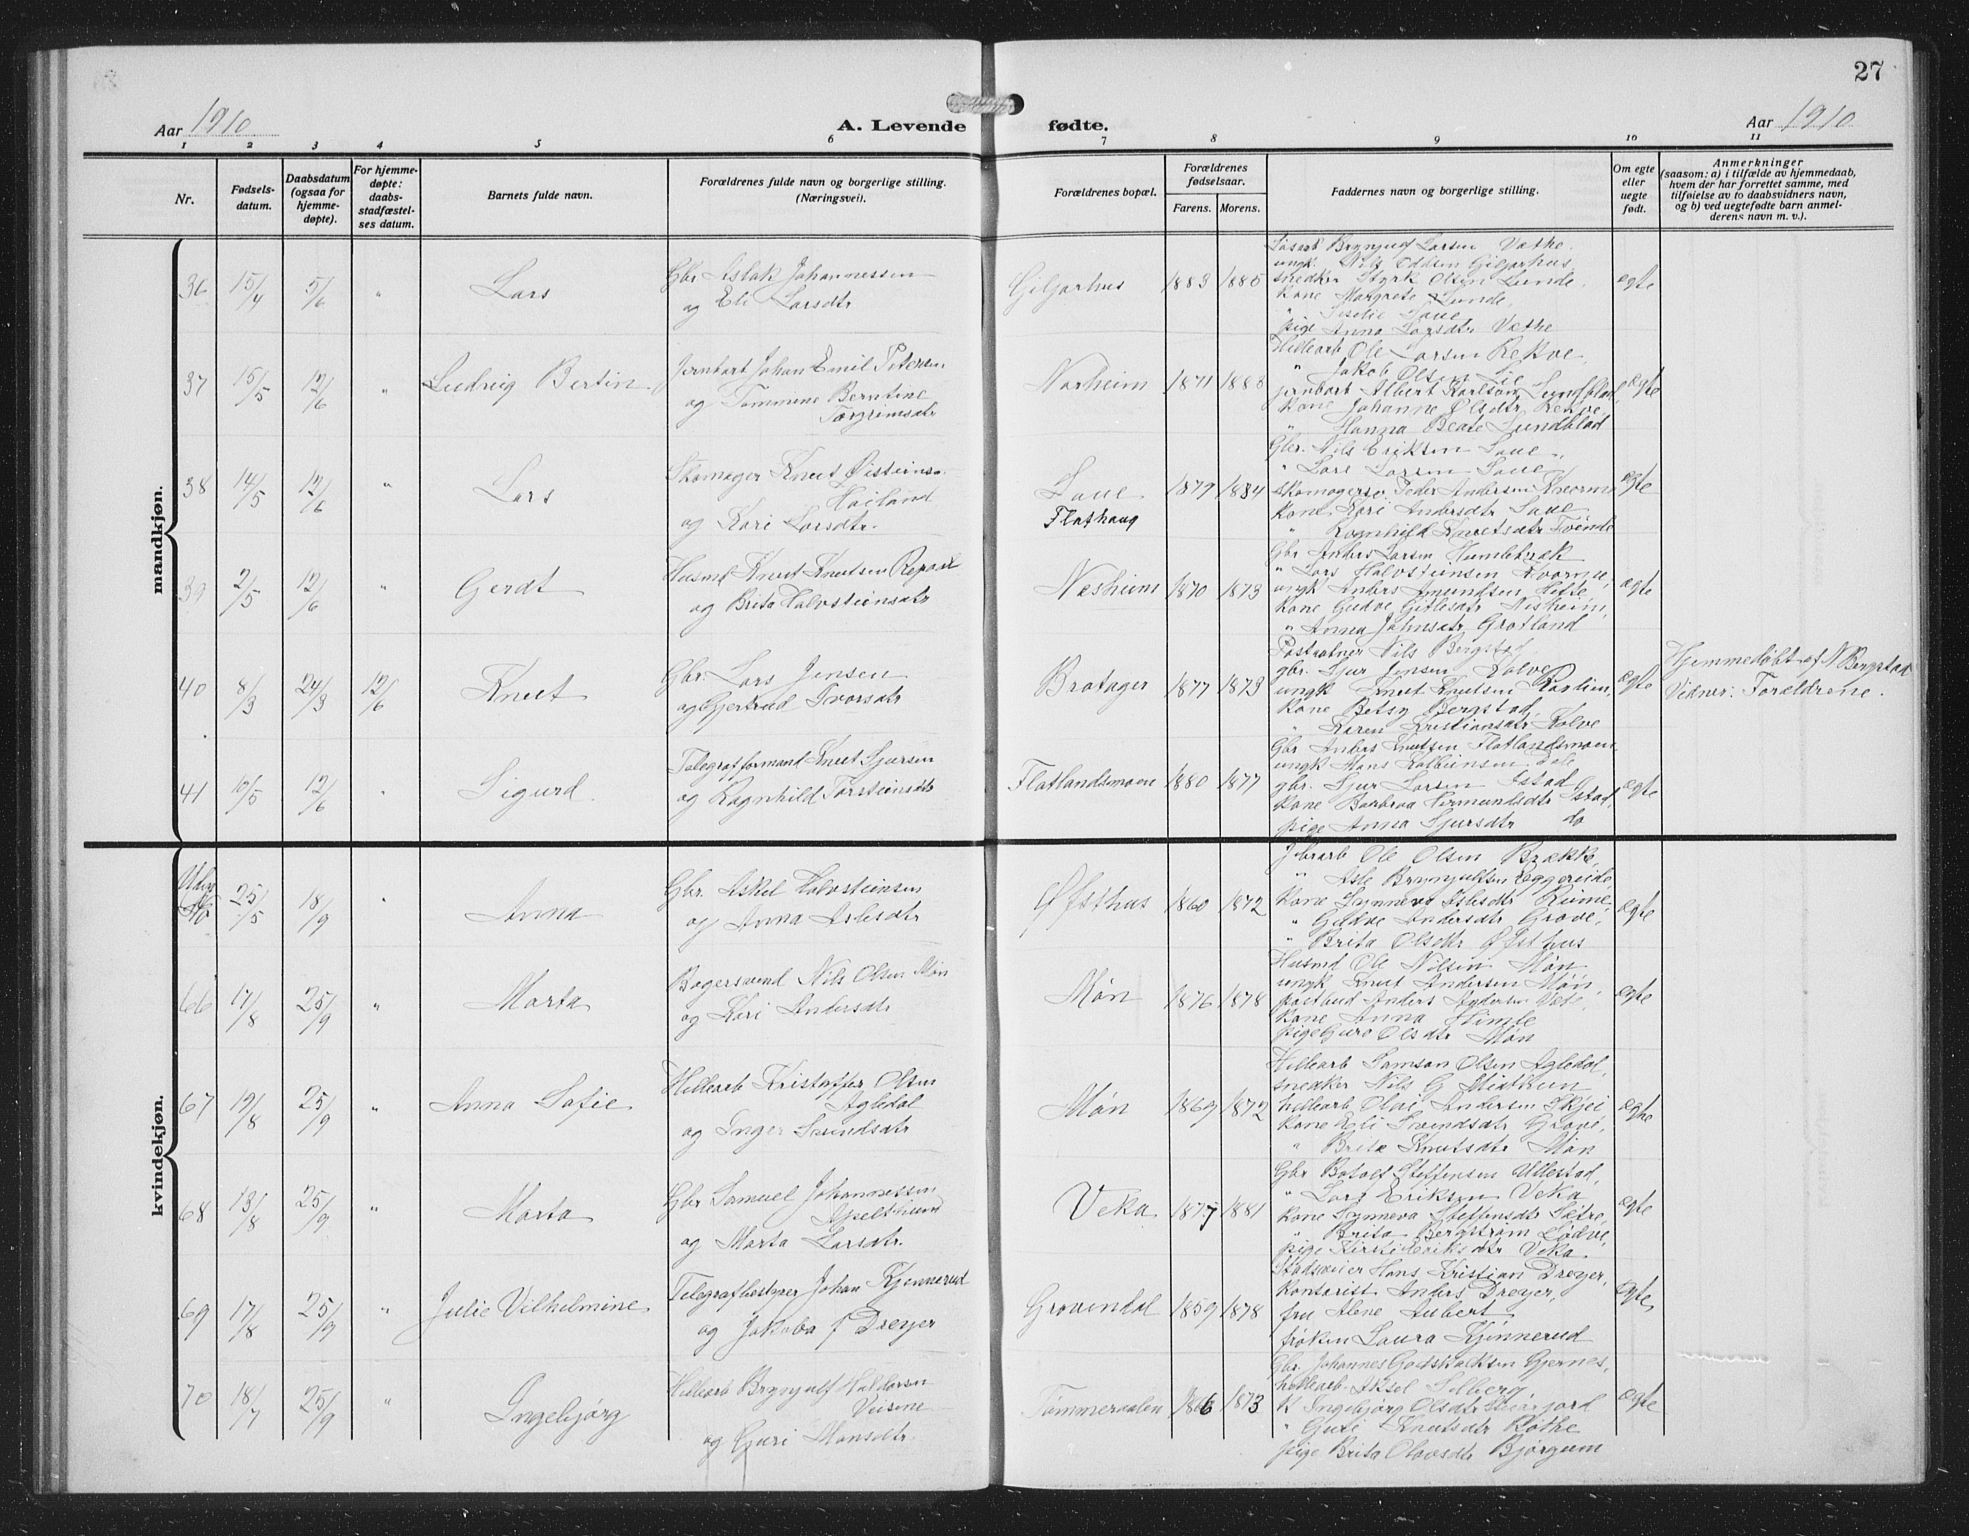 27
Aar 1910
A. Levende fødte.
Aar 1910
1 2 3 4 5 6 7 8 9 10 11
Nr.
Fødsels-
datum.
Daabsdatum
(ogsaa for
hjemme-
døpte).
For hjemme-
døpte:
daabs-
stadfæstel-
ses datum.
Barnets fulde navn.
Forældrenes fulde navn og borgerlige stilling.
(Næringsvei).
Forældrenes bopæl.
Forældrenes
fødselsaar.
Farens. Morens.
Faddernes navn og borgerlige stilling.
Om egte
eller
uegte
født.
Anmerkninger
(saasom: a) i tilfælde av hjemmedaab,
hvem der har forrettet samme, med
tilføielse av to daabsvidners navn,
og b) ved uegtefødte barn anmel-
derens navn m. v.).
mandkjøn.
36 15/4 5/6 " Lars
Gbr. Aslak Johannessen
og Eli Larsdtr
Giljarhus 1883 1885
Brynjulf Larsen Væthe.
ungk. Nils Oddsen Giljarhus,
snedker Styrk Olsen Lunde,
kone Margrete Lunde,
pige Anna Larsdtr Væthe
egte
37 15/5 12/6 " Ludvig Bertin
Jernbarb Johan Emil Petersen
og Tommine Berntine
Torgrimsdtr
Norheim 1871 1883
Hillearb Ole Larsen Rekve,
" Jakob Olsen Lie
jernbarb Albert Karlson Lundblad,
kone Johanne Olsdtr Rekve,
" Hanna Beate Lundblad
egte
38 14/5 12/6 " Lars
Skomager Knut Øisteins.
Hailand
og Kari Larsdtr.
Saue
Flathaug
1879 1884
Gbr. Nils Eriksen Saue,
" Lars Larsen Saue
skomagersv Peder Andersen Kvorme
kone Kari Andersdtr Saue,
" Ragnhild Knutsdtr Tvinde
egte
39 2/5 12/6 " Gerdt
Husmd Knut Knutsen Repaal
og Brita Halvsteinsdtr
Nesheim 1870 1873
Gbr Anders Larsen Humlebrek
" Lars Halvsteinsen Kvorme,
ungk Anders Amundsen Hefte,
kone Gudve Gitlesdtr Nesheim,
" Anna Johnsdtr Grotland
egte
40 8/3 24/3 12/6 Knut
Gbr. Lars Jensen
og Gjertrud Ivarsdtr
Bratager 1877 1873
Nils Bergstad
gbr. Sjur Jensen Kolve
ungk Knut Knutsen
kone Betsy Bergstad,
" Karen Kristiansdtr Kolve
egte
Hjemmedøbt af N Bergstad
Vidner: Forældrene.
41 10/5 12/6 " Sigurd
Telegrafformand Knut Sjursen
og Ragnhild Torsteinsdtr
Flatlandsmoen 1880 1877
Gbr Anders Knutsen Flatlandsmoen
ungk Mons Kolbeinsen
gbr. Sjur Larsen Istad
kone Barbraa Hermundsdtr Istad,
pige Anna Sjursdtr do
egte
kvindekjøn.
25/5 18/9 " Anna
Gbr. Askel Halvsteinsen
og Anna Aslesdtr
Øfsthus 1860 1872
Ole Olsen Brække,
" Asle Brynjulfsen Eggereide,
kone Synneva Aslesdtr Rume,
" Gudve Andersdtr Grove,
" Brita Olsdtr Øfsthus
egte
66 17/8 25/9 " Marta
Bagersvend Nils Olsen Møn
og Kari Andersdtr
Møn 1876 1878
Husmd Ole Nilsen Møn
ungk Knut Andersen Møn,
postbud Anders Andersen
kone Anna Himle
pige Guro Olsdtr Møn
egte
67 19/8 25/9 " Anna Sofie
Hillearb Kristoffer Olsen
Agledal
og Inger Svendsdtr
Møn 1869 1872
Hillearb Samson Olsen Agledal,
snedker Nils G Midttun
hillearb Olai Andersen Skjei
kone Eli Svendsdtr Grove,
" Brita Knutsdtr Møn
egte
68 13/8 25/9 " Marta
Gbr Samuel Johannessen
Apelthun
og Marta Larsdtr.
Veka 1877 1881
Gbr Botolf Steffensen Ullestad,
" Lars Eriksen Veka
kone Synneva Steffensdtr Sætre,
" Brita Bergstrøm Lødve,
pige Kirsti Eriksdtr Veka
egte
69 17/8 25/9 " Julie Vilhelmine
Telegrafbestyrer Johan Kjennerud
og Jakoba f Dreyer
Grovendal 1859 1878
Hans Kristian Dreyer,
kontorist Anders Dreyer,
fru Alene Aubert
frøken Laura Kjennerud
egte
70 18/7 25/9 " Ingebjørg
Hillearb Brynjulf Haldorsen
Veisene
og Guri Monsdtr.
Tømmeraalen 1866 1873
Gbr. Johannes Godskalksen Gjernes,
hillearb. Aksel Selberg,
K Ingebjørg Olsdtr
" Guri Knutsdtr Røthe
pige Brita Olavsdtr Bjørgum
egte